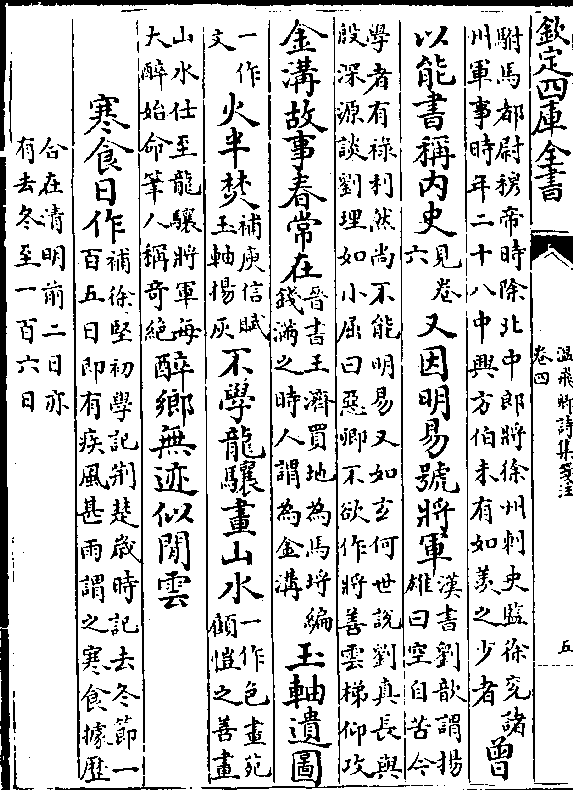 欽定四庫全書
温飛卿詩集箋注
卷四
五
駙馬都尉穆帝時除北中郎將徐州刺史監徐兖諸
州軍事時年二十八中興方伯未有如羡之少者
曾
以能書稱内史
見卷
六
又因明易號將軍
漢書劉歆謂揚
雄曰空自苦今
學者有禄利然尚不能明易又如𤣥何世說劉真長與
殷深源談劉理如小屈曰惡卿不欲作將善雲梯仰攻
金溝故事春常在
晉書王濟買地為馬埒編
錢滿之時人謂為金溝
玉軸遺圖
一作
文
火半焚
補庾信賦
玉軸揚灰
不學龍驤畫山水
一作色畫苑
顧愷之善畫
山水仕至龍驤將軍每
大醉始命筆人稱奇絶
醉鄉無迹似閒雲
寒食日作
補徐堅初學記荆楚嵗時記去冬節一
百五日即有疾風甚雨謂之寒食據歴
合在清明前二日亦
有去冬至一百六日